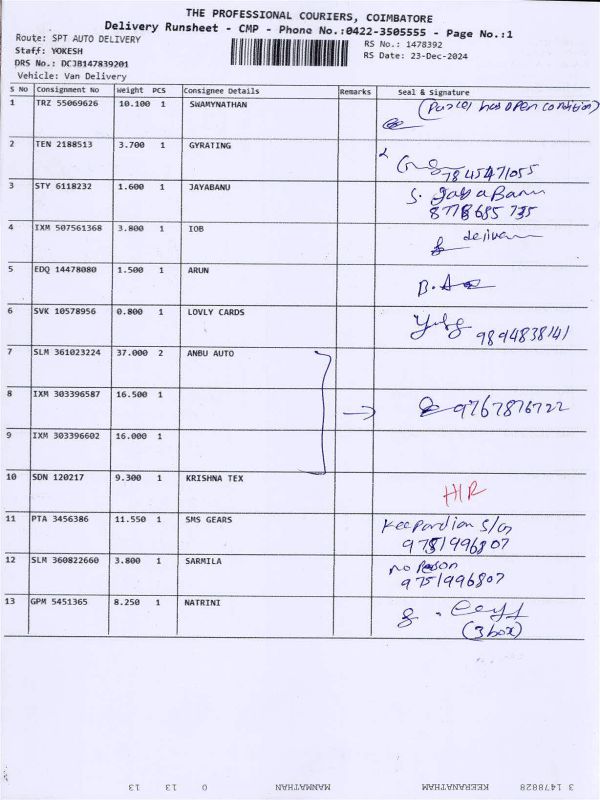 THE PROFESSIONAL COURIERS, COIMBATORE
Delivery Runsheet - CMP - Phone No.:0422-3505555 - Page No.:1
Route: SPT AUTO DELIVERY
RS No.: 1478392
Staff: YOKESH
RS Date: 23-Dec-2024
DRS No.: DCJB147839201
Vehicle: Van Delivery
S No Consignment No Weight PCS Consignee Details Remarks Seal & Signature
1 TRZ 55069626 10.100 1 SWAMYNATHAN (Parcel has open condition)
2 TEN 2188513 3.700 1 GYRATING
7845471055
3 STY 6118232 1.600 1 JAYABANU S. Jaya Banu
8778685 735
4 IXM 507561368 3.800 1 IOB
5 EDQ 14478080 1.500 1 ARUN
6 SVK 10578956 0.800 1 LOVLY CARDS
9894838141
7 SLM 361023224 37.000 2 ANBU AUTO
8 IXM 303396587 16.500 1 9767876722
9 IXM 303396602 16.000 1
10 SDN 120217 9.300 1 KRISHNA TEX H/R
11 PTA 3456386 11.550 1 SMS GEARS
9751996807
12 SLM 360822660 3.800 1 SARMILA no Person
9751996807
13 GPM 5451365 8.250 1 NATRINI
(3 box)
3 1478828 KEERANATHAM MANMATHAN 0 13 13